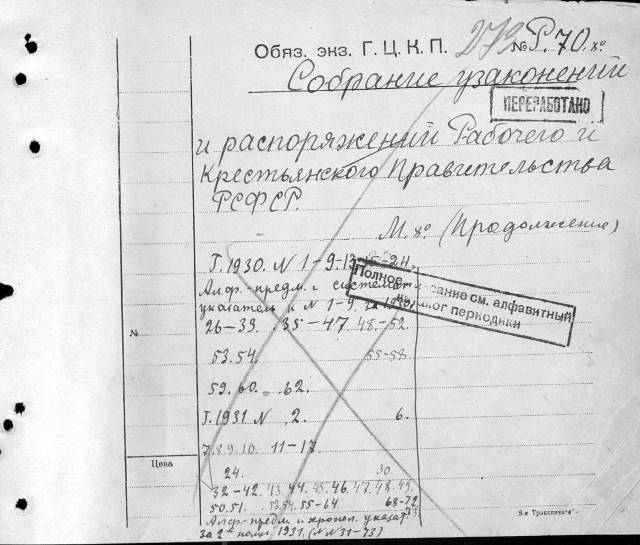 Обяз. экз. Г.Ц.К.П. 273 №Р.70.х⁰
Собрание узаконений
ПЕРЕРАБОТАНО
и распоряжений Рабочего и
Крестьянского Правительства
РСФСР.
М. х⁰ (Продолжение)
Г. 1930. N 1-9-13 -24,
Полное описание см. алфавитный
каталог периодики
Алф.-предм. и системат.
указатель к N 1-9 за 1930г
26-33. 35-47 48-52
№
53.54. 55-58
59.60. 62.
Г. 1931 N 2. 6.
7.8.9.10. 11-17
Цена
24. 30
32-42. 43. 44. 45. 46. 47. 48. 49.
50.51. 53.54. 55-64. 68-72
73
Алф.-предм. и хронол. указат.
за 2ое полуг. 1931. (N N 31-73)